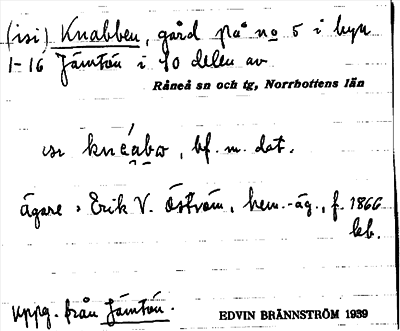 (isi) Knabben, gård på no 5 i byn
1-16 Jämtön i NO delen av
Råneå sn och tg, Norrbottens län
ısı knéabɷ, bf. m. dat.
ägare: Erik V. Öström, hem.-äg., f. 1866
kb.
Uppg. från Jämtön.
EDVIN BRÄNNSTRÖM 1939